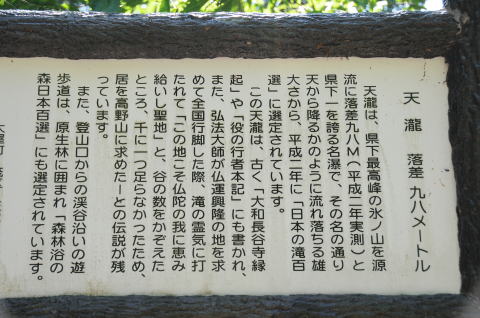 天瀧 落差 九八メートル
天瀧は、県下最高峰の氷ノ山を源
流に落差九八M(平成二年実測)と
県下一を誇る名瀑で、その名の通り
天から降るかのように流れ落ちる雄
大さから、平成二年に「日本の滝百
選」に選定されています。
この天瀧は、古く「大和長谷寺縁
起」や「役の行者本記」にも書かれ、
また、弘法大師が仏運興隆の地を求
めて全国行脚した際、滝の霊気に打
たれて「この地こそ仏陀の我に恵み
給いし聖地」と、谷の数をかぞえた
ところ、千に一つ足らなかったため、
居を高野山に求めたーとの伝説が残
っています。
また、登山口からの渓谷沿いの遊
歩道は、原生林に囲まれ「森林浴の
森日本百選」にも選定されています。